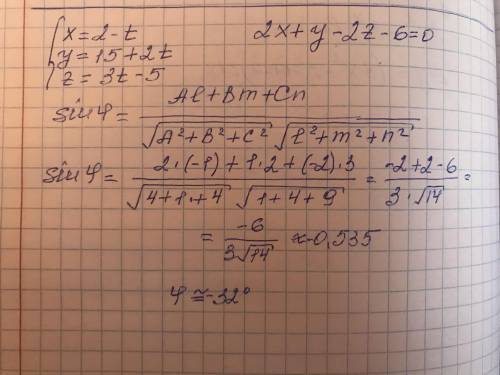 {x = 2 - t    2x + y - 2z - 6 = 0
y = 15 + 2t
z = 3t - 5
sin φ = (Al + Bm + Cn) / (√(A² + B² + C²) √(l² + m² + n²))
sin φ = (2·(-1) + 1·2 + (-2)·3) / (√(4+1+4) √(1+4+9)) = (-2+2-6) / (3·√14) =
= -6 / (3√14) ≈ -0,535
φ ≅ -32°